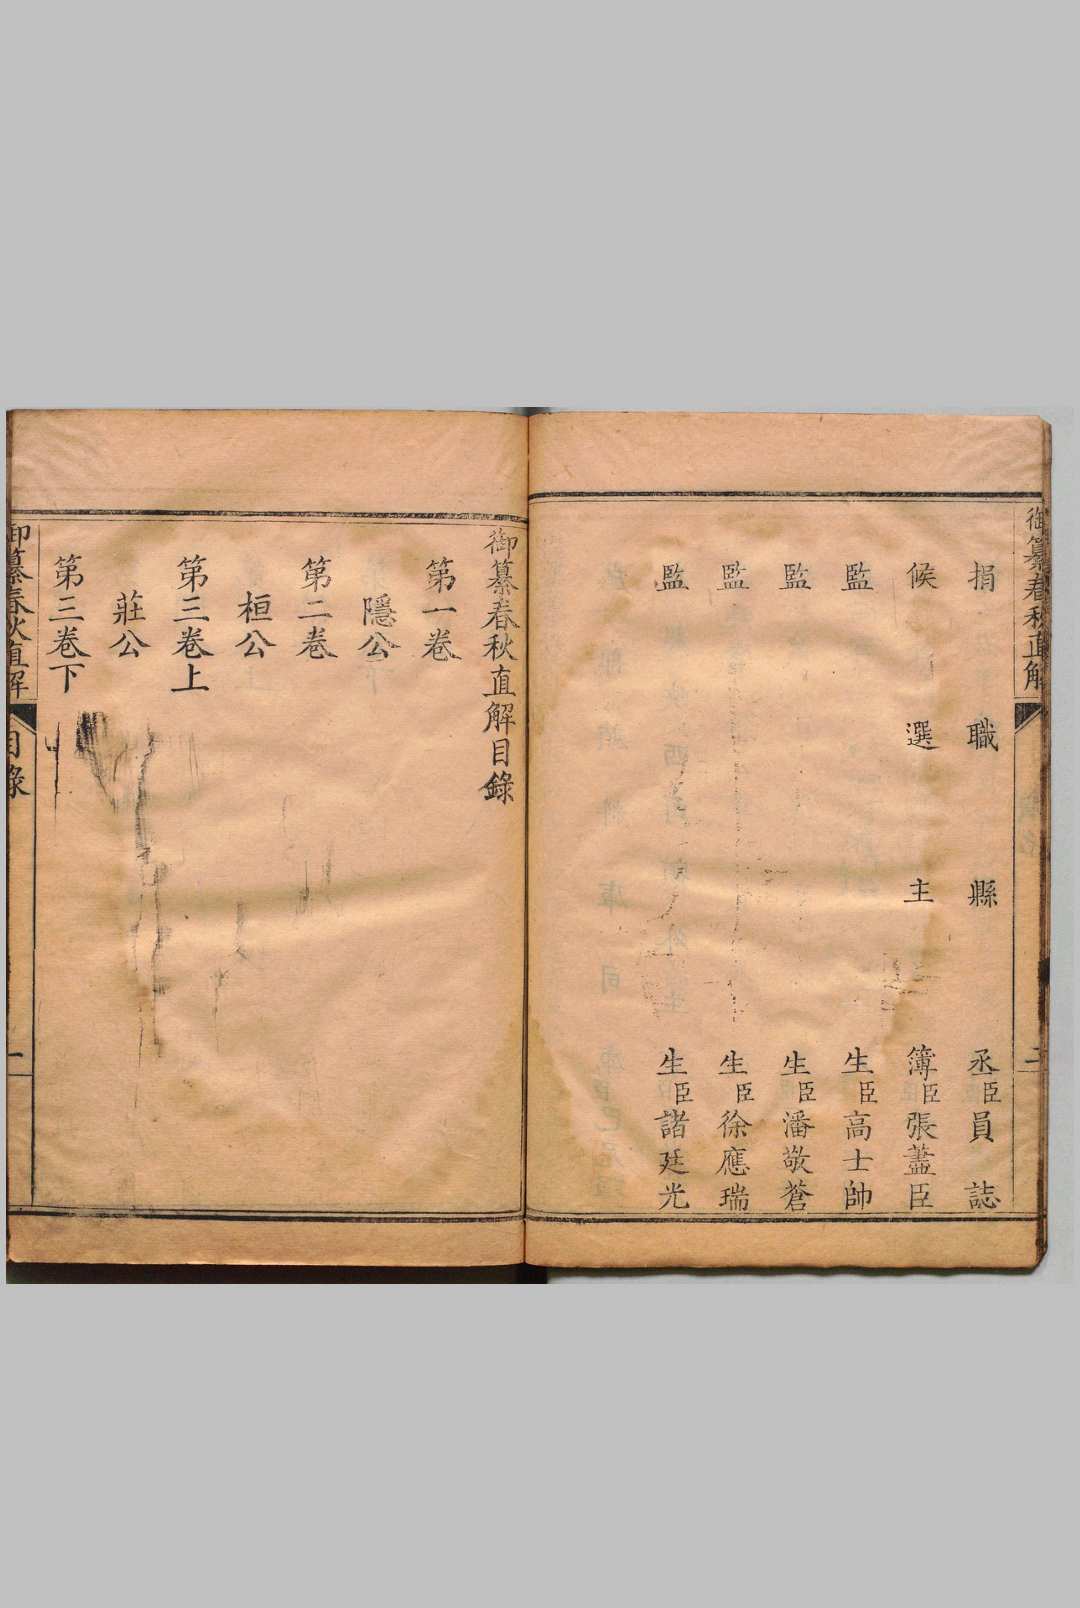 御纂春秋直解
二
捐職縣丞臣員誌
候選主簿臣張藎臣
監生臣高士帥
監生臣潘敬蒼
監生臣徐應瑞
監生臣諸廷光
御纂春秋直解目錄
第一卷
隱公
第二卷
桓公
第三卷上
莊公
第三卷下
御纂春秋直解
目錄
一